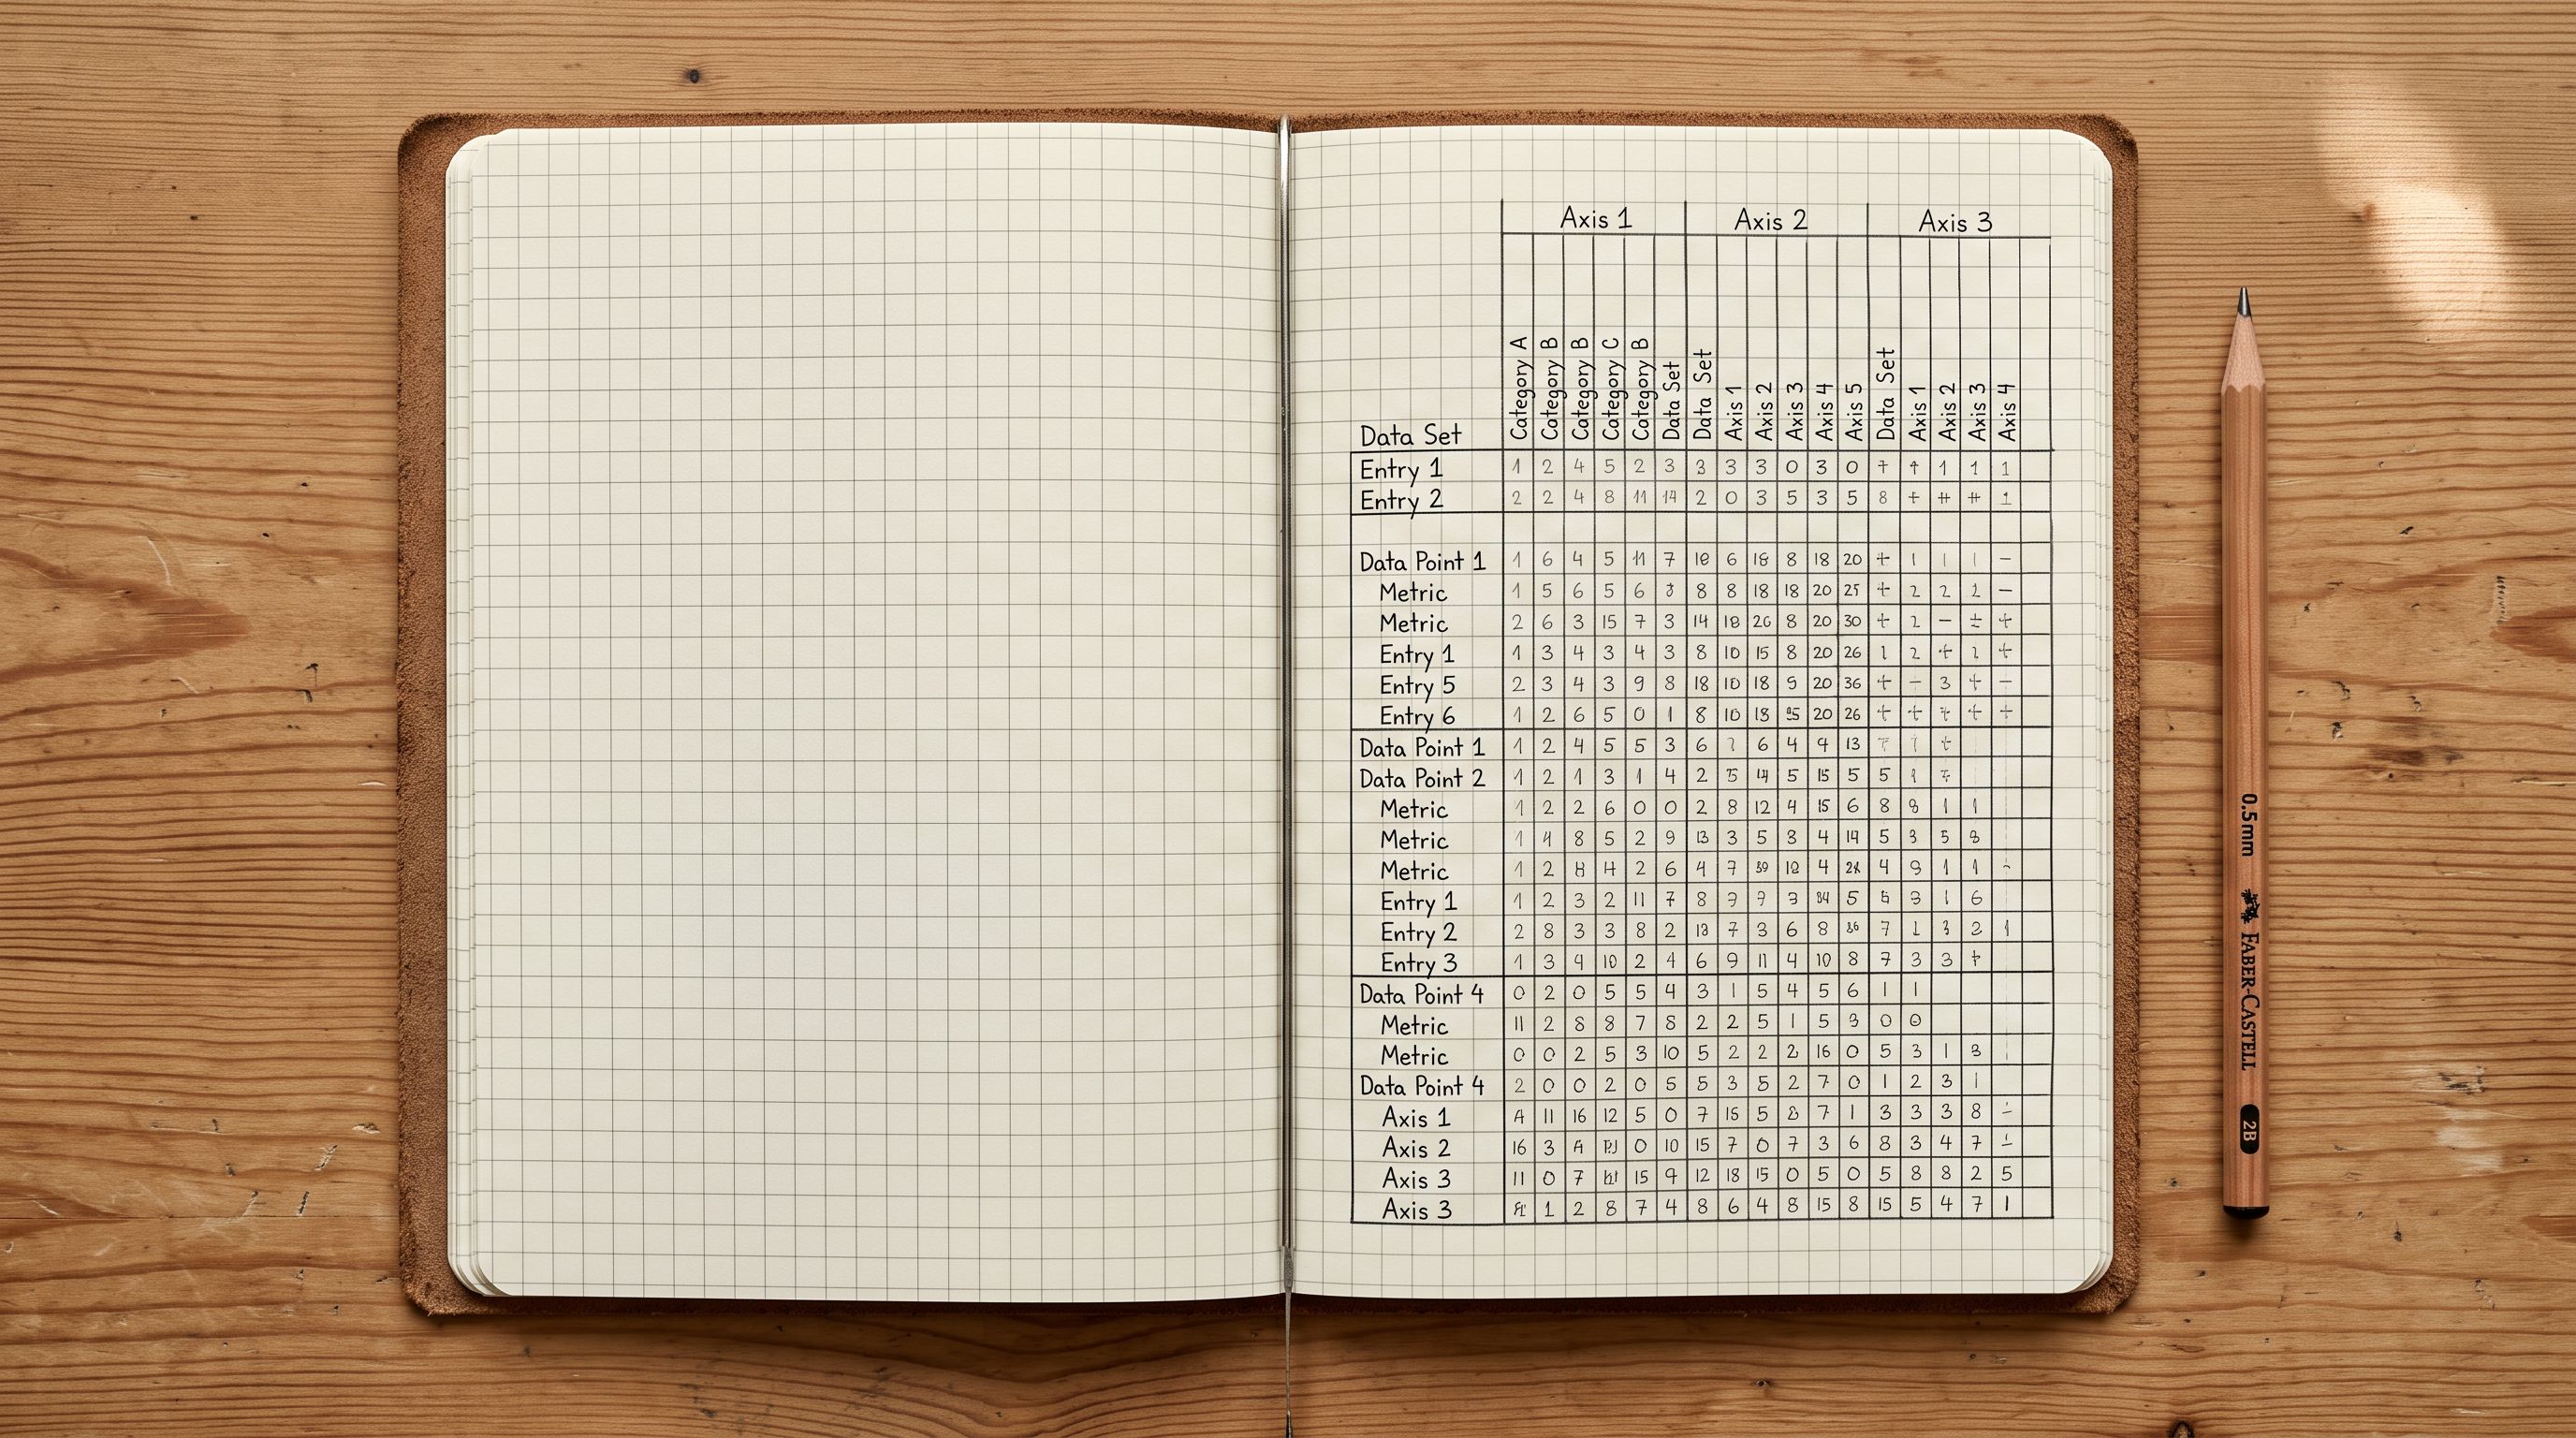 Axis 1 Axis 2 Axis 3
Data Set Category A Category B Category B Category C Category B Data Set Data Set Axis 1 Axis 2 Axis 3 Axis 4 Axis 5 Data Set Axis 1 Axis 2 Axis 3 Axis 4
Entry 1 1 2 4 5 2 3 3 3 3 0 3 0 1 1 1
Entry 2 2 2 4 8 11 14 2 0 3 5 3 5 8 + 1
Data Point 1 1 6 4 5 11 7 6 18 8 18 20 + 1 1 1 -
Metric 1 5 6 5 6 8 8 18 18 20 25 + 2 2 2 -
Metric 2 6 3 15 7 3 14 18 26 8 20 30 + 2 - ± +
Entry 1 1 3 4 3 4 3 8 10 15 8 20 26 1 2 + 2 +
Entry 5 2 3 4 3 9 8 18 10 18 9 20 36 + - 3 + -
Entry 6 1 2 6 5 0 1 8 10 18 20 26 + + + + +
Data Point 1 1 2 4 5 5 3 6 6 4 9 13
Data Point 2 1 2 1 3 1 4 2 5 14 5 15 5 5
Metric 1 2 2 6 0 0 2 8 12 4 15 6 8 8 1 1
Metric 1 4 8 5 2 9 13 3 5 3 4 14 5 3 5 8
Metric 1 2 8 4 2 6 4 7 4 4 9 1 1
Entry 1 1 2 3 2 11 7 8 3 5 3 1 6
Entry 2 2 8 3 3 8 2 13 7 3 6 8 7 1 3 2 1
Entry 3 1 3 9 10 2 4 6 9 11 4 10 8 7 3 3 +
Data Point 4 0 2 0 5 5 4 3 1 5 4 5 6 1 1
Metric 11 2 8 8 7 8 2 2 5 1 5 3 0 0
Metric 0 0 2 5 3 10 5 2 2 2 16 0 5 3 1 3
Data Point 4 2 0 0 2 0 5 5 3 5 2 7 0 1 2 3 1
Axis 1 11 16 12 5 0 7 15 5 7 1 3 3 3 8
Axis 2 16 3 0 10 15 7 0 7 3 6 8 3 4 7
Axis 3 11 0 7 15 9 12 18 15 0 5 0 5 8 8 2 5
Axis 3 1 2 8 7 4 8 6 4 8 15 8 15 5 4 7 1
0.5mm FABER-CASTELL 2B